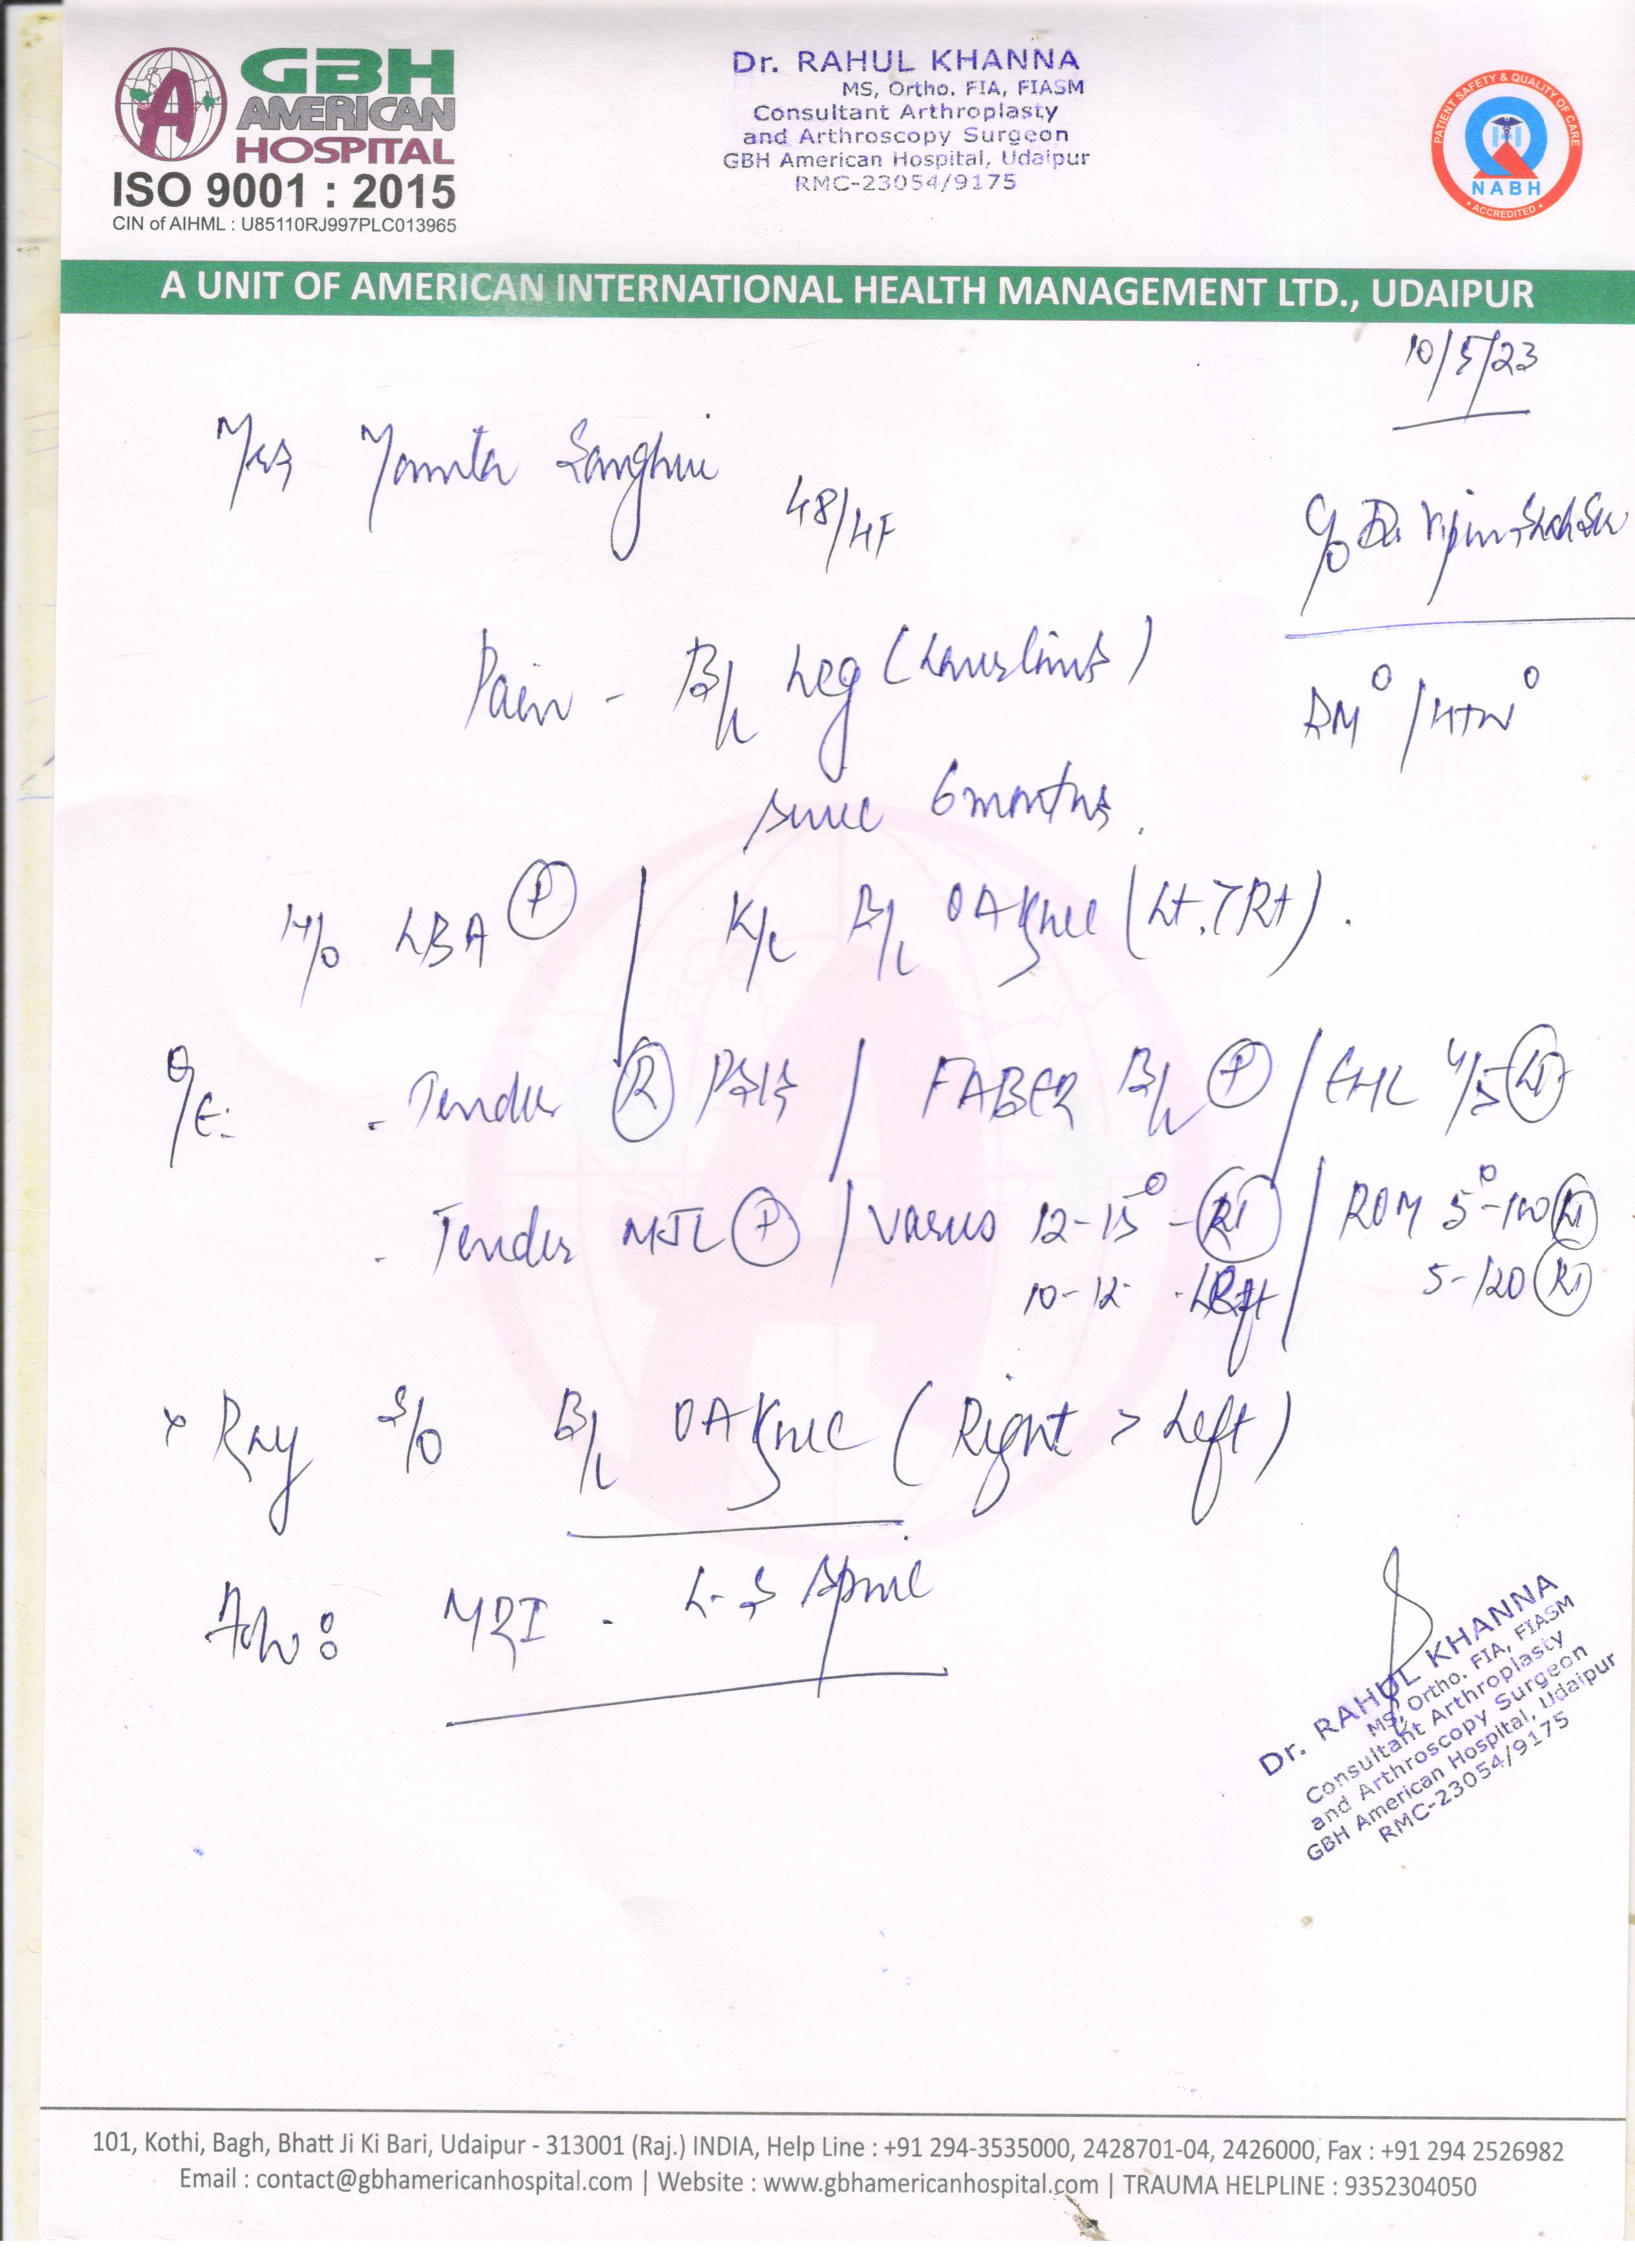 GBH
AMERICAN
HOSPITAL
ISO 9001 : 2015
CIN of AIHML : U85110RJ997PLC013965
Dr. RAHUL KHANNA
MS, Ortho. FIA, FIASM
Consultant Arthroplasty
and Arthroscopy Surgeon
GBH American Hospital, Udaipur
RMC-23054/9175
PATIENT SAFETY & QUALITY OF CARE
NABH
ACCREDITED
A UNIT OF AMERICAN INTERNATIONAL HEALTH MANAGEMENT LTD., UDAIPUR
10/5/23
Mrs
48/F
C/o Dr.
Pain - B/L Leg (Lower limbs)
DM° / HTN°
since 6 months.
H/o LBA (P) / K/c B/L OA Knee (Lt. > Rt).
O/E: - Tender (R) PSIS / FABER B/L (P) / EHL 4/5 (Lt)
- Tender MJL (P) / Varus 12-15° - (RT) / ROM 5°-100
10-12 - Left / 5-120 (RT)
X Ray S/o B/L OA Knee (Right > Left)
Adv: MRI - L-S Spine
Dr. RAHUL KHANNA
MS, Ortho. FIA, FIASM
Consultant Arthroplasty
and Arthroscopy Surgeon
GBH American Hospital, Udaipur
RMC-23054/9175
101, Kothi, Bagh, Bhatt Ji Ki Bari, Udaipur - 313001 (Raj.) INDIA, Help Line : +91 294-3535000, 2428701-04, 2426000, Fax : +91 294 2526982
Email : contact@gbhamericanhospital.com | Website : www.gbhamericanhospital.com | TRAUMA HELPLINE : 9352304050